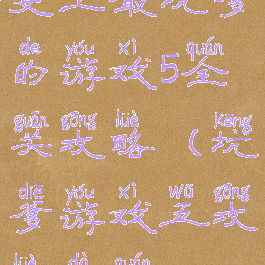 上最坑爹
de yóu xì quán
的游戏5全
guān gōng lüè kēng
关攻略（坑
diē yóu xì wǔ gōng
爹游戏五攻
lüè dà quán